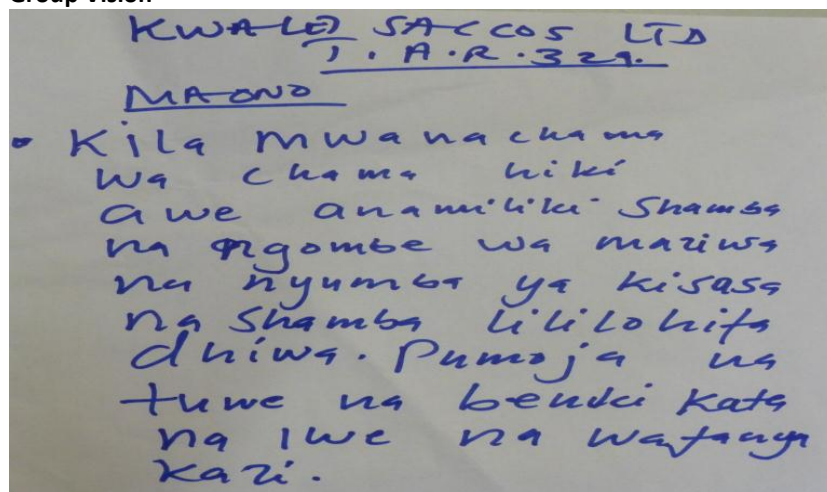 Group Vision
KWALEI SACCOS LTD
T.A.R.329.
MAONO
• Kila mwanachama
wa chama hiki
awe anamiliki Shamba
na ngombe wa maziwa
na nyumba ya kisasa
na Shamba lililohifa
dhiwa. Pamoja na
tuwe na benki Kata
na iwe na wafanya
kazi.